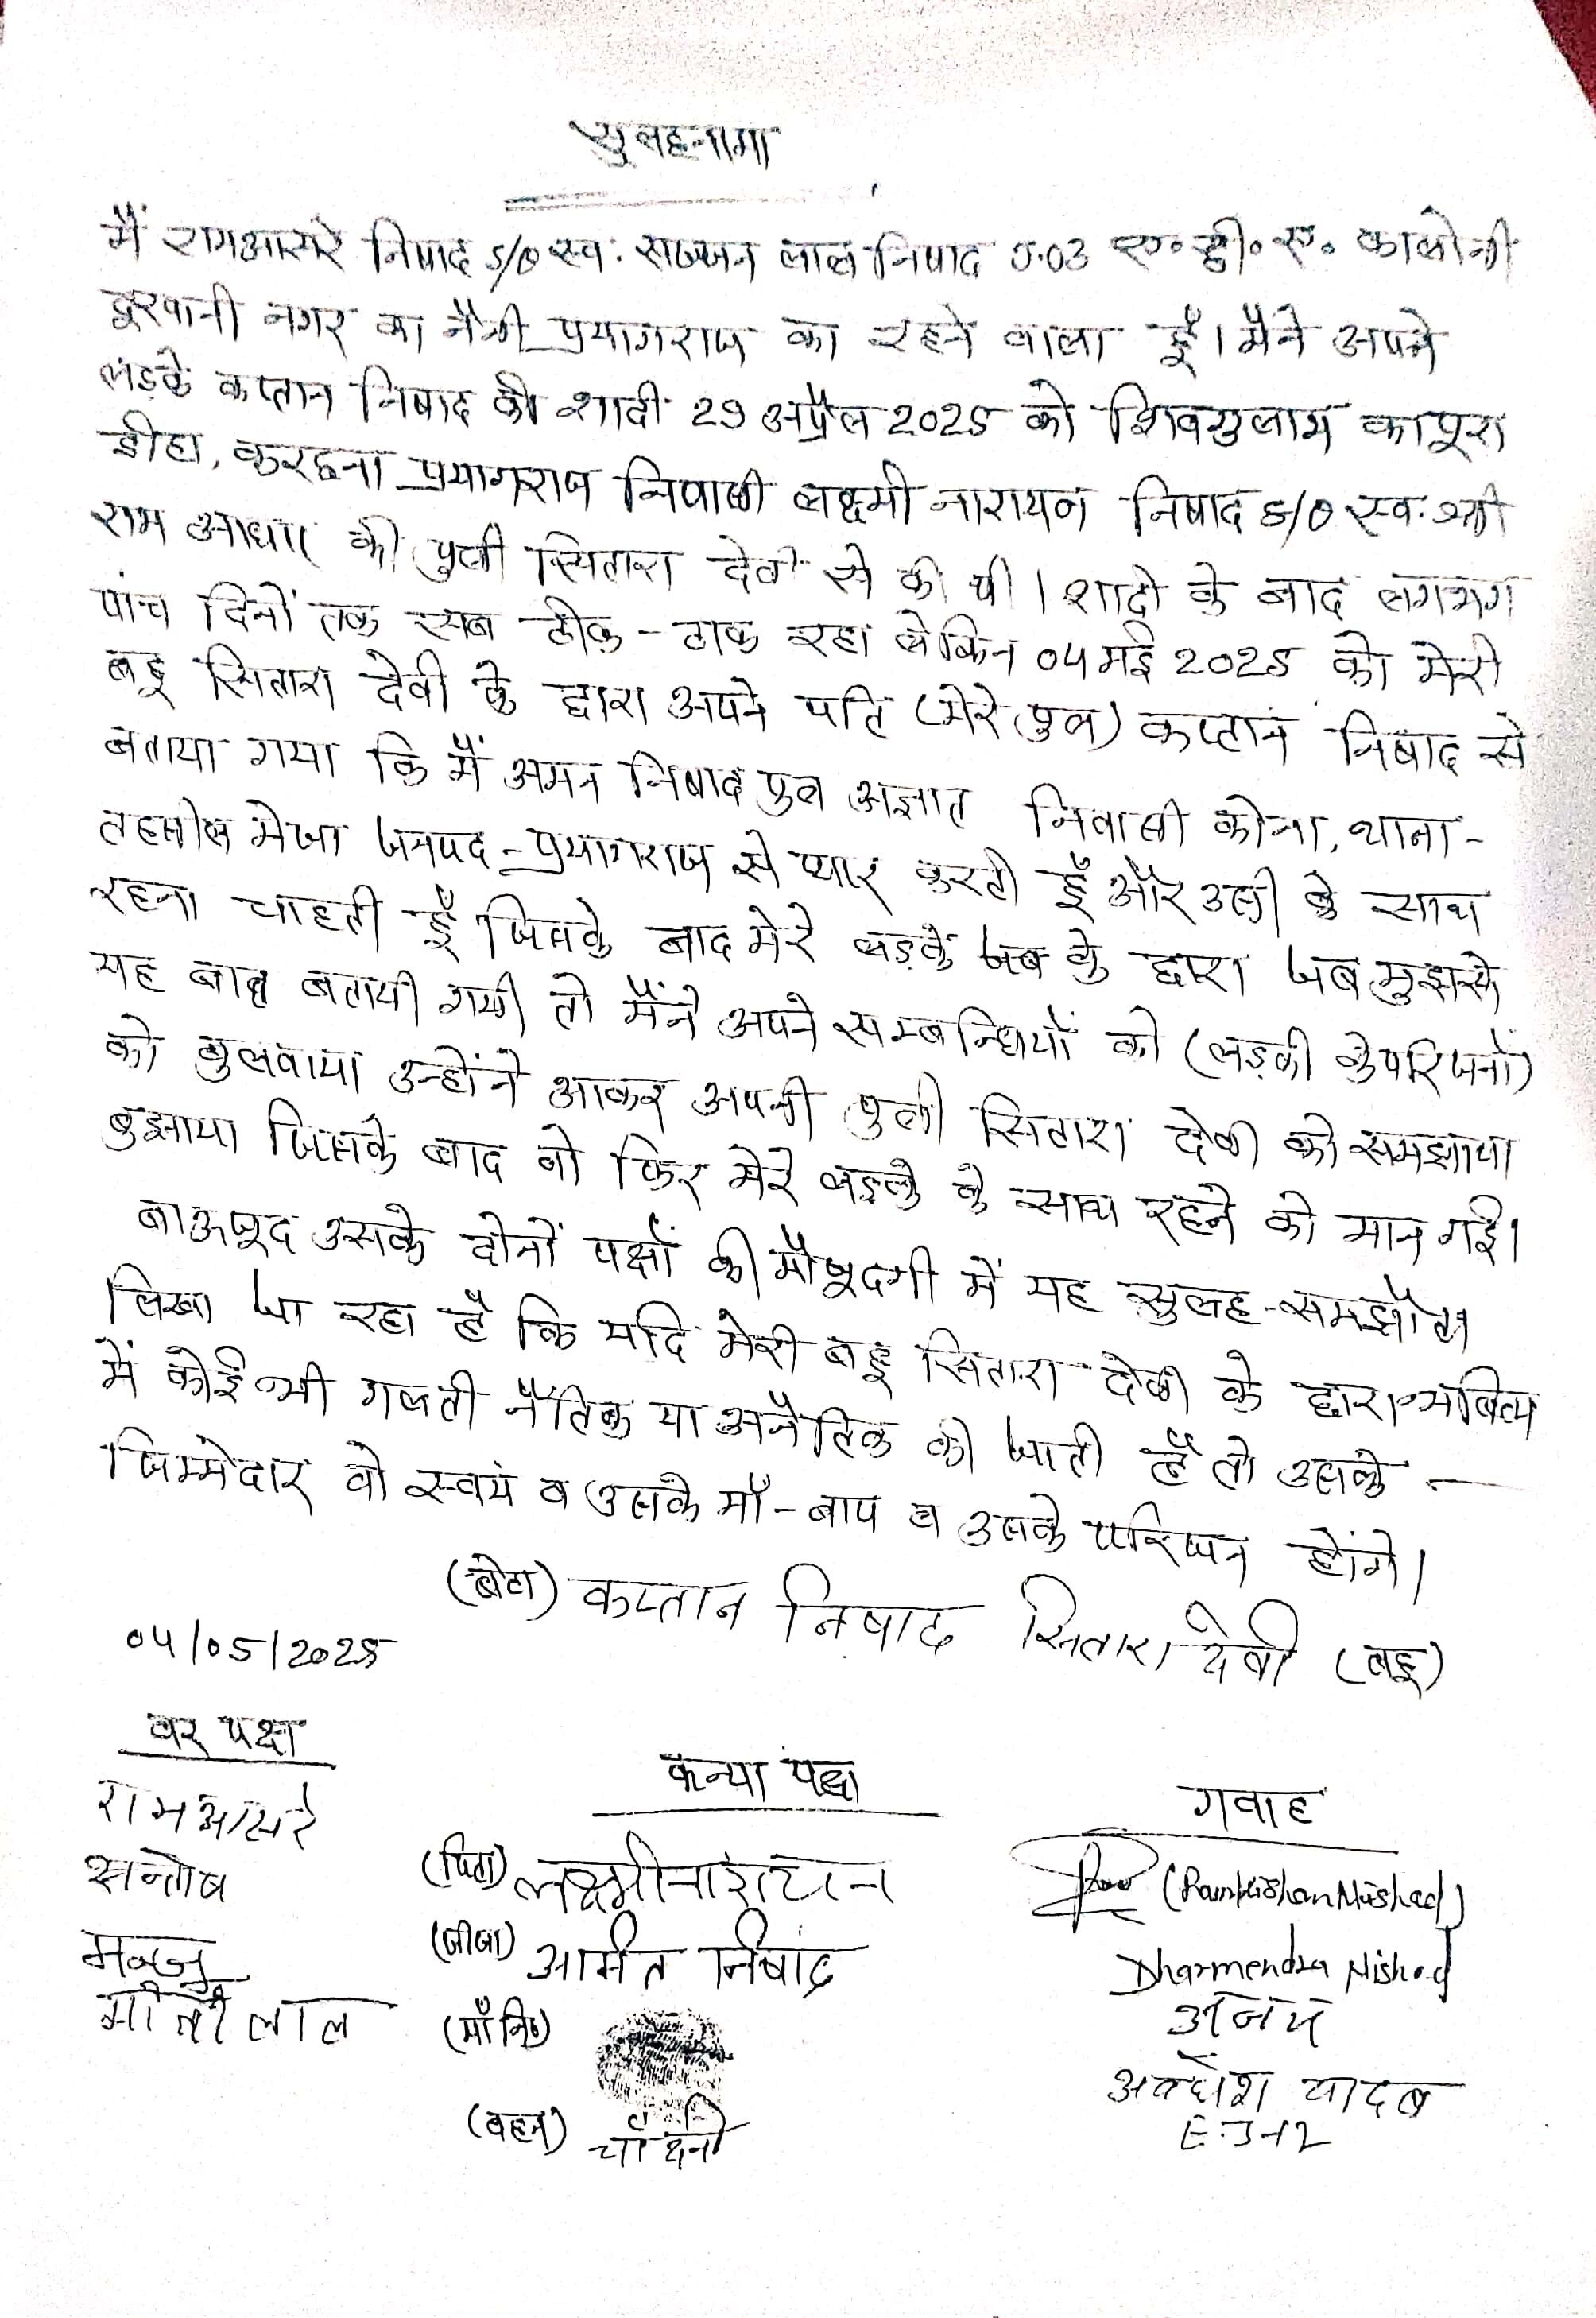 सुलहनामा
मैं रामआसरे निषाद S/O स्व. सज्जन लाल निषाद ए.डी.ए. कालोनी
दूरवानी नगर का नैनी प्रयागराज का रहने वाला हूँ। मैने अपने
लड़के कप्तान निषाद की शादी 29 अप्रैल 2025 को शिवगुलाम का पूरा
डीहा, करछना प्रयागराज निवासी लक्ष्मी नारायण निषाद S/O स्व: श्री
राम आधार की पुत्री सितारा देवी से की थी। शादी के बाद लगभग
पांच दिनों तक सब ठीक-ठाक रहा लेकिन 04 मई 2025 को मेरी
बहू सितारा देवी के द्वारा अपने पति (मेरे पुत्र) कप्तान निषाद से
बताया गया कि मैं अमन निषाद पुत्र अज्ञात निवासी कोना, थाना-
तहसील मेजा जनपद-प्रयागराज से प्यार करती हूँ और उसी के साथ
रहना चाहती हूँ जिसके बाद मेरे लड़के जब के द्वारा जब मुझसे
यह बात बतायी गयी तो मैंने अपने सम्बन्धियों को (लड़की के परिजनों)
को बुलवाया उन्होंने आकर अपनी पुत्री सितारा देवी को समझाया
बुझाया जिसके बाद वो फिर मेरे लड़के के साथ रहने को मान गई।
बाऊजूद उसके दोनों पक्षों की मौजूदगी में यह सुलह-समझौता
लिखा जा रहा है कि यदि मेरी बहू सितारा देवी के द्वारा भविष्य
में कोई भी गलती नैतिक या अनैतिक की जाती है तो उसके -
जिम्मेदार वो स्वयं व उसके माँ-बाप व उसके परिजन होंगे।
(बेटा) कप्तान निषाद सितारा देवी (बहू)
04/05/2025
वर पक्ष
रामआसरे
सन्तोष
मन्जू
मोती लाल
कन्या पक्ष
(पिता) लक्ष्मीनारायन
(जीजा) अमित निषाद
(माँ नि०)
(बहन) चाँदनी
गवाह
(Ramkishan Nishad)
Dharmendra Nishad
अजय
अवधेश यादव